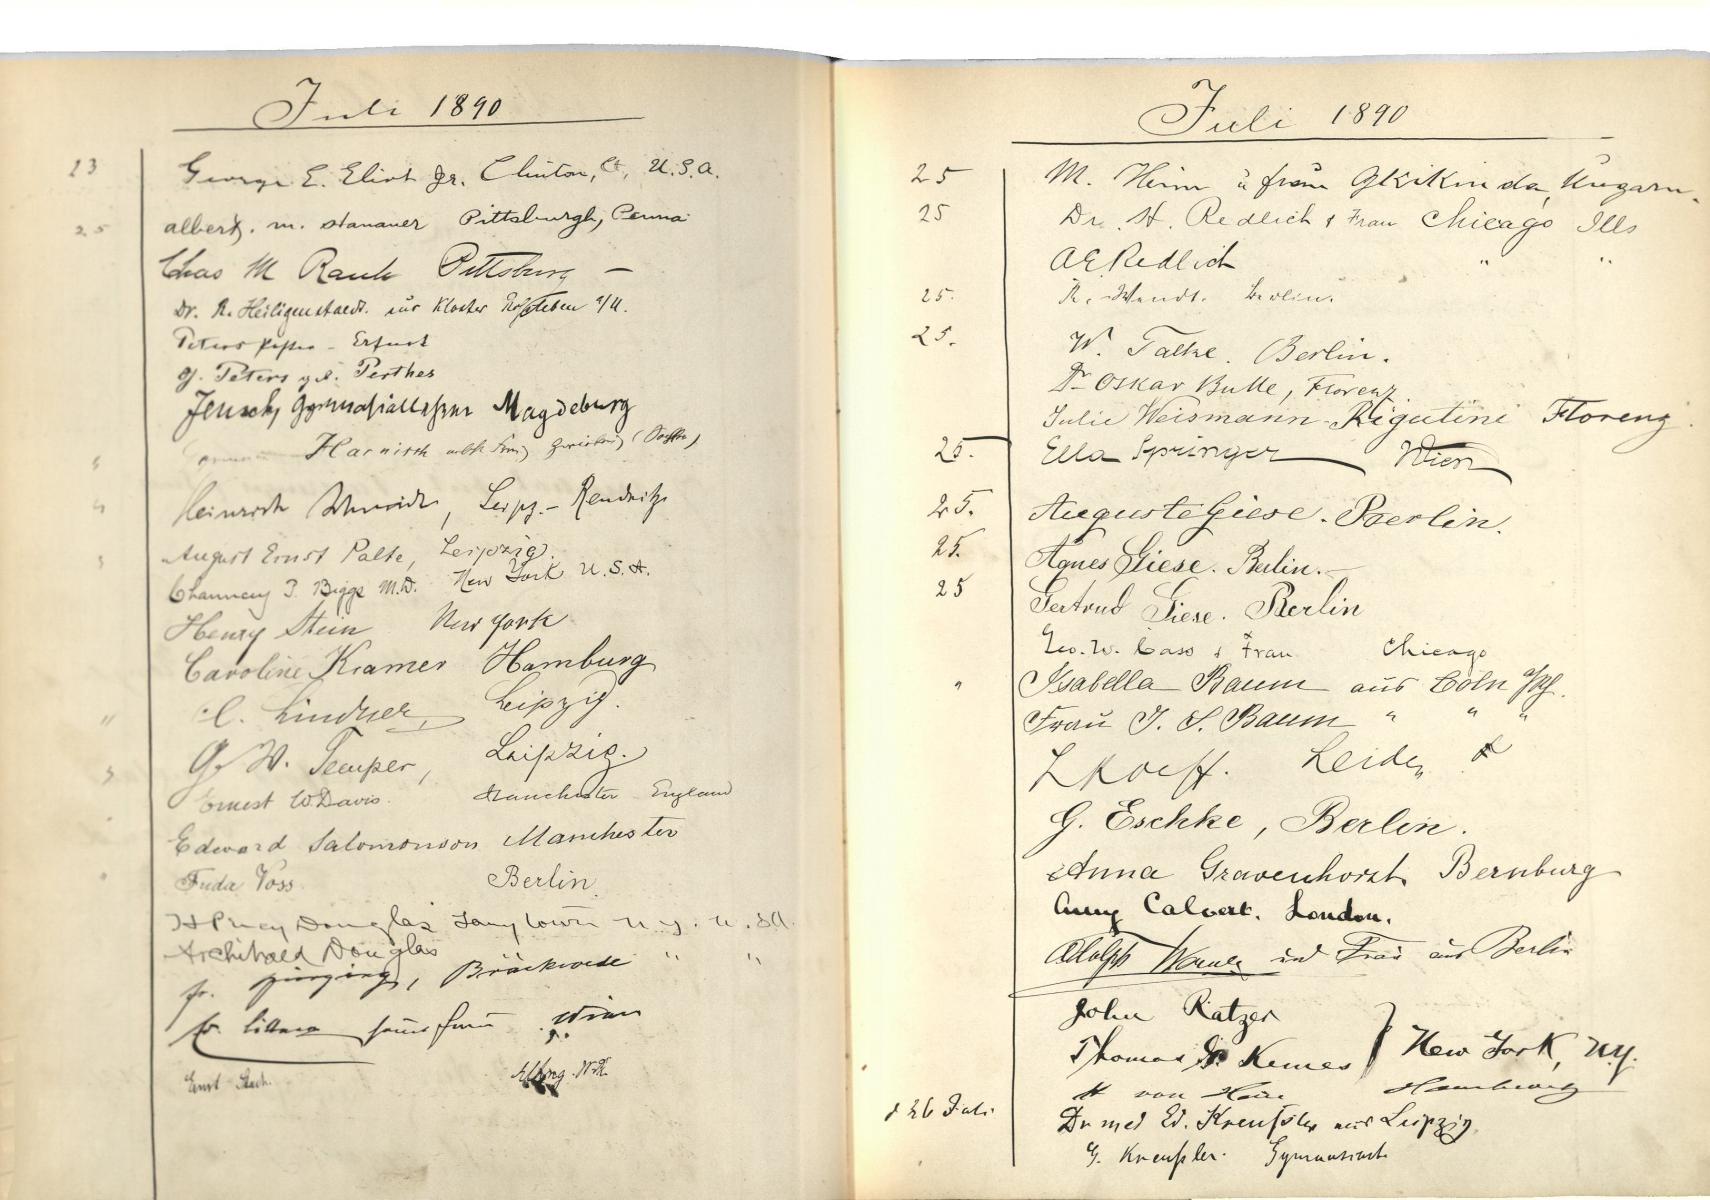 Juli 1890
23 George E. Eliot Jr. Clinton, Ct, U.S.A.
25 Albert. M. Hanauer Pittsburgh, Penna
Chas M Rauh Pittsburg —
Dr. R. Heiligenstaedt. Kloster
Peters Erfurt
G. Peters Perthes
Magdeburg
Harnisch
Heinrich Schmidt, Leipz.- Reudnitz
August Ernst Palte, Leipzig.
Chauncey P. Biggs M.D. New York U.S.A.
Henry Stein New York
Caroline Kramer Hamburg
C. Lindner, Leipzig.
G. W. Temper, Leipzig.
Ernest W Davis. Manchester England
Edward Salomonson Manchester
Voss Berlin
Percy Douglas Tarrytown N.Y. U.S.A.
Archibald Douglas " "
fr. , Brackwede
Wien
Ernst
Juli 1890
25 M. Heim u frau Ungarn.
25 Dr. H. Redlich & Frau Chicago Ills
A E Redlich " "
25. R. Wendt. Berlin.
25. W. Berlin.
Dr Oskar Bulle, Florenz.
Julie Weismann-Rigutini Florenz.
25. Ella Springer Wien
25. Auguste Giese. Berlin.
25. Agnes Giese. Berlin.—
25 Gertrud Giese. Berlin
Geo. W. Cass & Frau Chicago
" Isabella Baum aus Cöln
Frau J. S. Baum " " "
Leiden
G. Eschke, Berlin.
Anna Gravenhorst Bernburg
Amy Calvert. London.
Adolph und Frau aus Berlin
John Ratzer
Thomas New York, N.Y.
von Hamburg
d 26 Juli Dr med Ed. Kreußler aus Leipzig
G. Kreußler. Gymnasiast